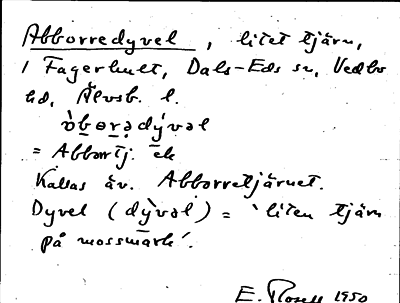 Abborredyvel, litet tjärn,
i Fagerhult, Dals-Eds sn, Vedbo
hd, Älvsb. l.
òbɵrədý̀vəl
= Abborrtj. ek
Kallas äv. Abborretjärnet.
Dyvel (dỳvəl) = 'liten tjärn
på mossmark'.
E. 1950